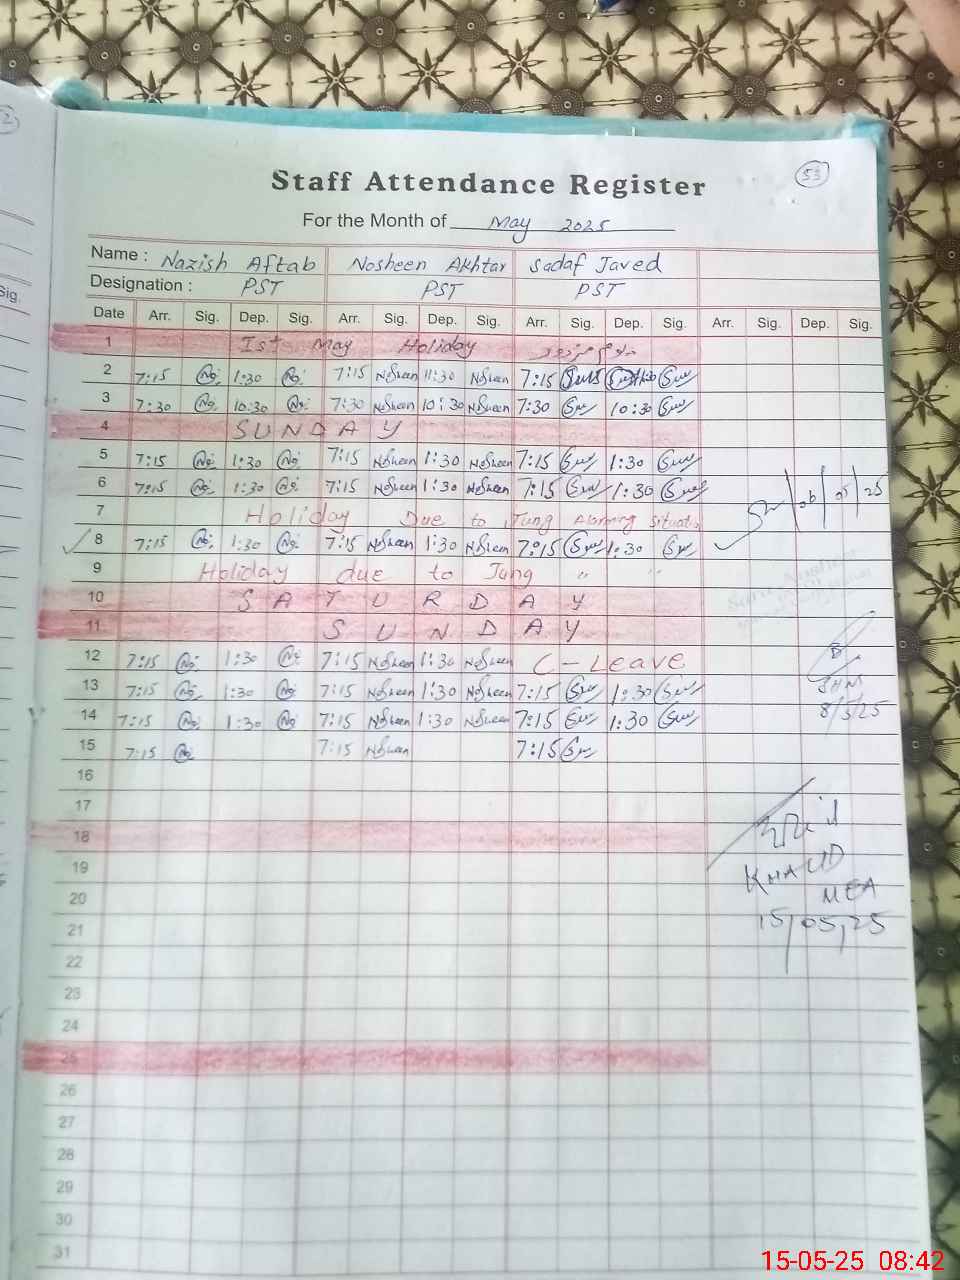 53
Staff Attendance Register
For the Month of May 2025
Name : Nazish Aftab Nosheen Akhtar Sadaf Javed
Designation : PST PST PST
Sig.
Date Arr. Sig. Dep. Sig. Arr. Sig. Dep. Sig. Arr. Sig. Dep. Sig. Arr. Sig. Dep. Sig.
1 Ist May Holiday
2 7:15 1:30 7:15 Nosheen 11:30 Nosheen 7:15
3 7:30 10:30 7:30 Nosheen 10:30 Nosheen 7:30 10:30
4 SUNDAY
5 7:15 1:30 7:15 Nosheen 1:30 Nosheen 7:15 1:30
6 7:15 1:30 7:15 Nosheen 1:30 Nosheen 7:15 1:30
06/05/25
7 Holiday Due to Jung situatio
8 7:15 1:30 7:15 Nosheen 1:30 Nosheen 7:15 1:30
9 Holiday due to Jung " "
10 SATURDAY
11 SUNDAY
12 7:15 1:30 7:15 Nosheen 1:30 Nosheen C-Leave
13 7:15 1:30 7:15 Nosheen 1:30 Nosheen 7:15 1:30
14 7:15 1:30 7:15 Nosheen 1:30 Nosheen 7:15 1:30
8/5/25
15 7:15 7:15 Nosheen 7:15
16
17
18
19
KHALID
20
MEA
21
15/05/25
22
23
24
25
26
27
28
29
30
31
15-05-25 08:42